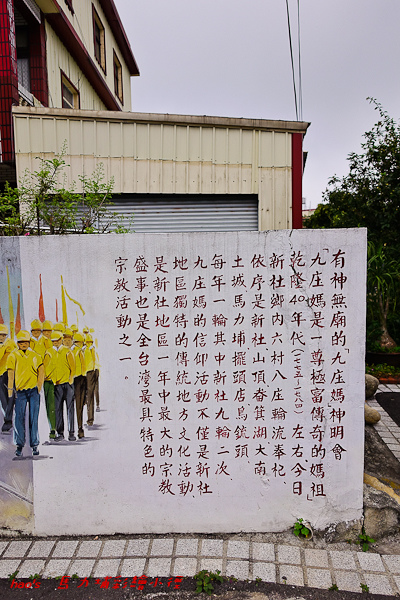 有神無廟的「九庄媽」神明會
「九庄媽」是一尊極富傳奇的「媽祖」
乾隆40年代(一七七五～一七八四)左右今日
新社鄉內六村八庄輪流奉祀，
依序是新社山頂、畚箕湖、大南、
土城、馬力埔、擺頭店、鳥銃頭，
每年一輪其中新社九輪二次，
九庄媽的信仰活動不僅是新社
地區獨特的傳統地方文化活動
是新社地區一年中最大的宗教
盛事也是全台灣最具特色的
宗教活動之一。